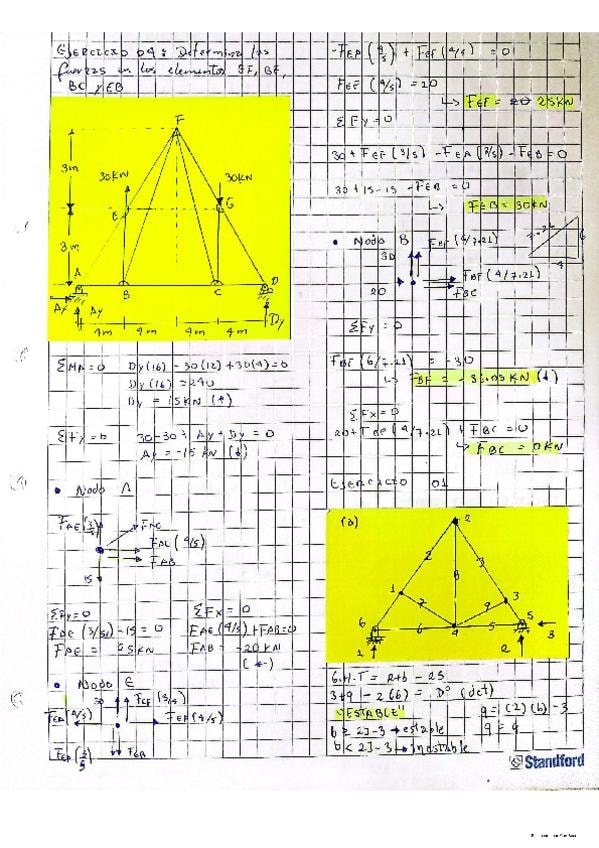 EJERCICIO 04: Determina las
fuerzas en los elementos EF, BF,
BC y EB
F
3m
30KN
30KN
E
G
3m
A
B
C
D
Ay
Dy
4m 4m 4m 4m
ΣMA=0 Dy(16) - 30(12) + 30(4) = 0
Dy(16) = 240
Dy = 15KN (↑)
ΣFy=0 30-30+Ay+Dy = 0
Ay = -15KN (↓)
• Nodo A
FAE(3/5)
FAE(4/5)
FAB
15
ΣFy=0 ΣFx=0
FAE(3/5)-15=0 FAE(4/5)+FAB=0
FAE = 25KN FAB = -20KN
(←)
• Nodo E
30 FEF(3/5)
FEA(4/5) FEF(4/5)
FEA(3/5) FEB
-FEA(4/5) + FEF(4/5) = 0
FEF(4/5) = 20
↳ FEF = 25KN
ΣFy=0
30+FEF(3/5)-FEA(3/5)-FEB=0
30+15-15-FEB=0
↳ FEB = 30KN
• Nodo B FBF(6/7.21)
30
FBF(4/7.21)
20
FBC
6
4
ΣFy=0
FBF(6/7.21) = -30
(↓)
ΣFx=0
20+FBF(4/7.21)+FBC=0
↳ FBC = 0KN
Ejercicio 01
(a)
2
2
8
3
1
7
9
3
6
6
4
5
5
1
2
3
G.H.T = r+b-2J
3+9-2(6) = 0° (det)
"ESTABLE" 9=(2)(6)-3
b ≥ 2J-3 → estable 9=9
b < 2J-3 → inestable
Standford